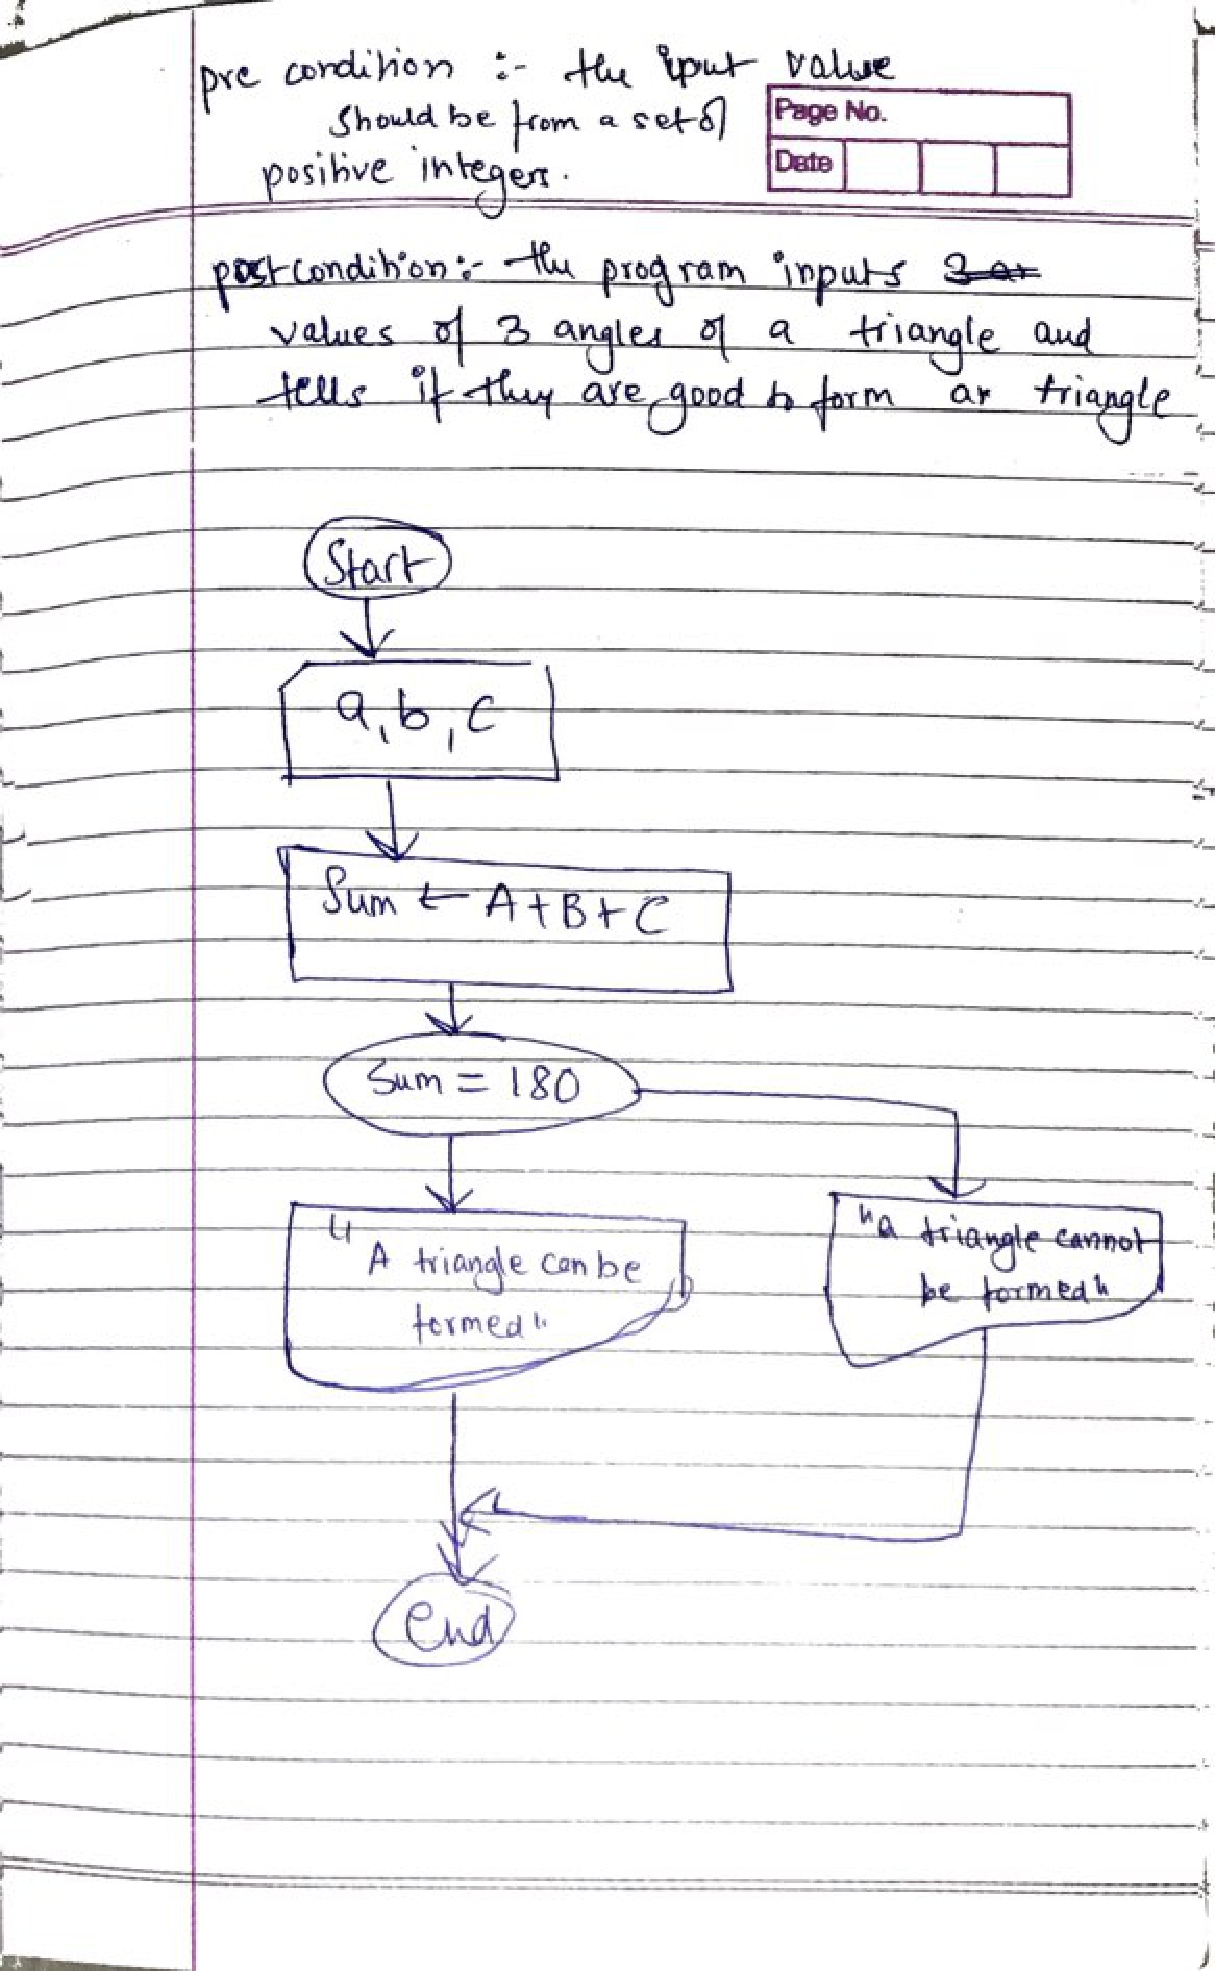 pre condition :- the iput value
should be from a set of
positive integers.
Page No.
Date
postcondition:- the program inputs
values of 3 angles of a triangle and
tells if they are good to form a triangle
Start
a, b, c
Sum ← A+B+C
Sum = 180
"A triangle can be
formed"
"a triangle cannot
be formed"
end